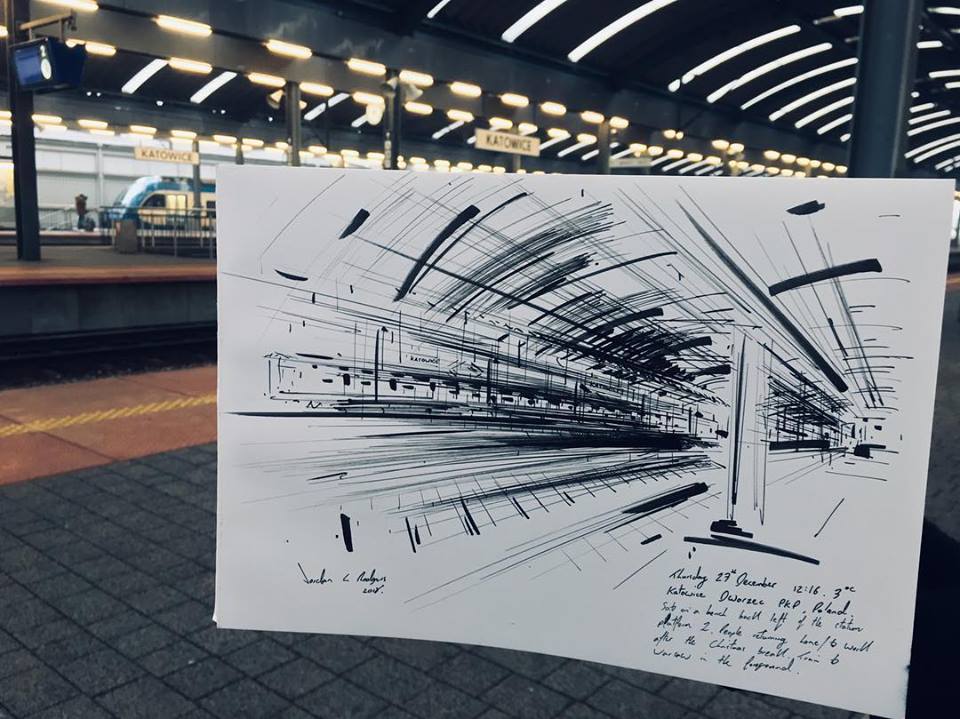 KATOWICE
KATOWICE
KATOWICE
KATOWICE
Jordan L Rodgers
2018.
Thursday 23rd December 12:16. 3°C
Katowice Dworzec PKP, Poland.
Sat on a bench back left of the station
platform 2. People returning home/to work
after the Christmas break. Train to
Warsaw in the foreground.